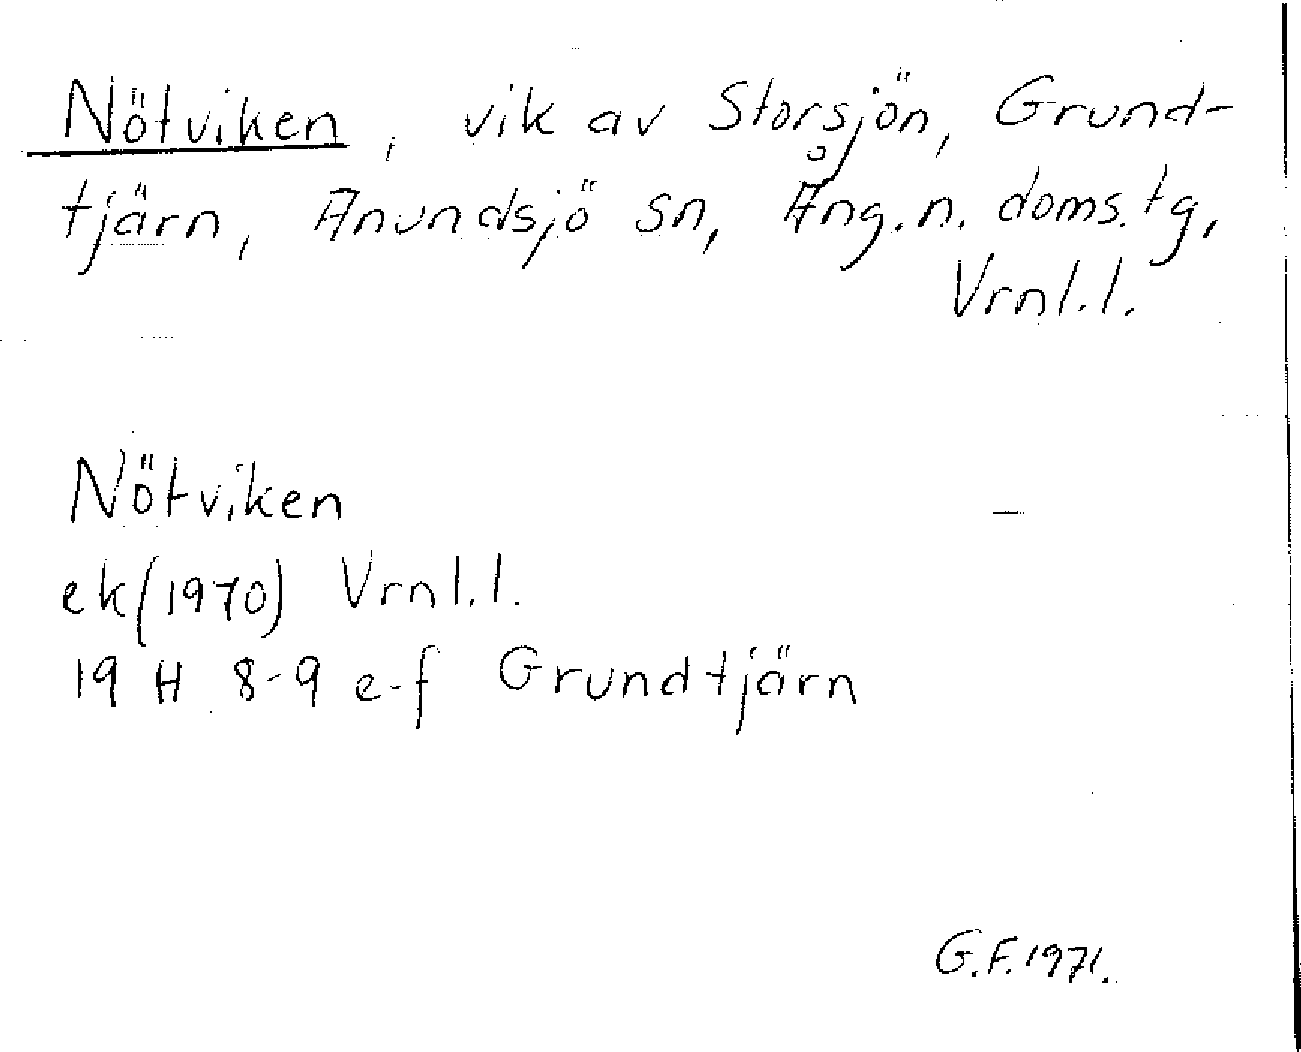 Nötviken, vik av Storsjön, Grund-
tjärn, Anundsjö sn, Ång.n. doms.tg,
Vrnl.l.
Nötviken
ek(1970) Vrnl.l.
19 H 8-9 e-f Grundtjärn
G.F.1971.